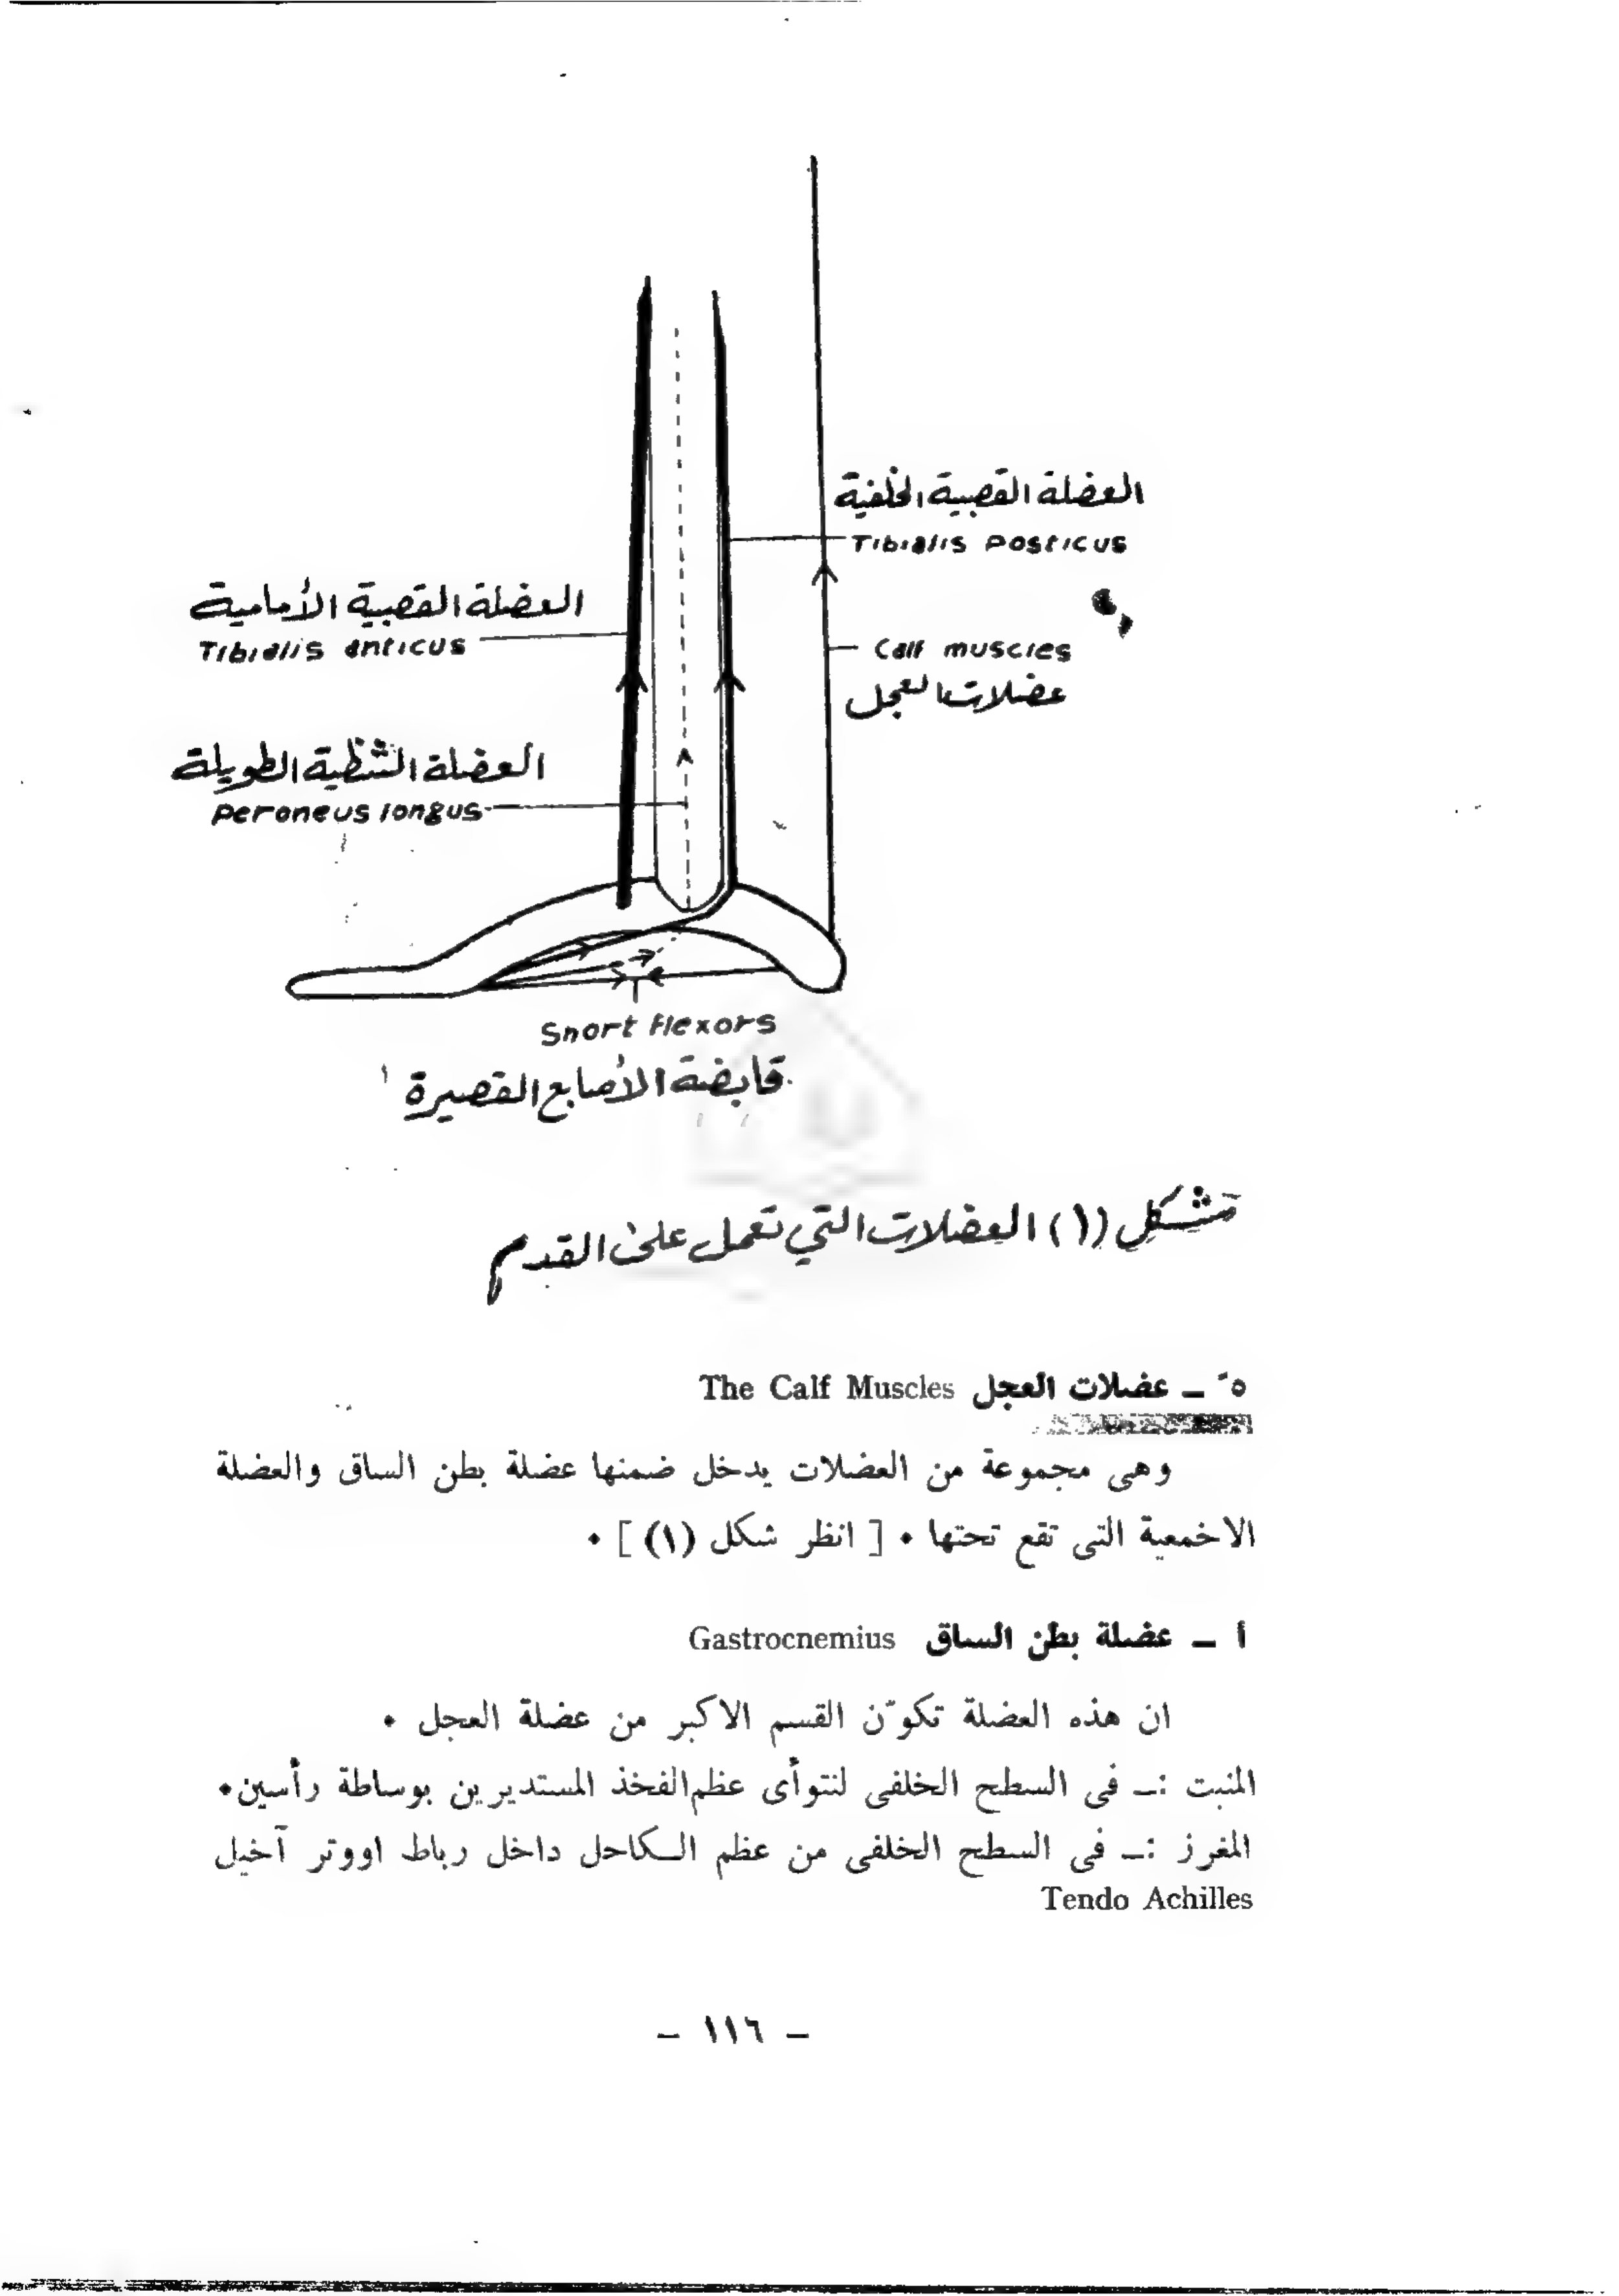 العضلة القصبية الخلفية
Tibialis posticus
العضلة القصبية الأمامية
Tibialis anticus
Calf muscles
عضلات العجل
العضلة الشظية الطويلة
peroneus longus
Short flexors
قابضة الأصابع القصيرة
شكل (١) العضلات التي تعمل على القدم
٥ ـ عضلات العجل The Calf Muscles
وهى مجموعة من العضلات يدخل ضمنها عضلة بطن الساق والعضلة
الاخمعية التى تقع تحتها ٠ [ انظر شكل (١) ] ٠
أ ـ عضلة بطن الساق Gastrocnemius
ان هذه العضلة تكوّن القسم الاكبر من عضلة العجل ٠
المنبت :ـ فى السطح الخلفى لنتوأى عظم الفخذ المستديرين بوساطة رأسين ٠
المغرز :ـ فى السطح الخلفى من عظم الكاحل داخل رباط او وتر آخيل
Tendo Achilles
ـ ١١٦ ـ